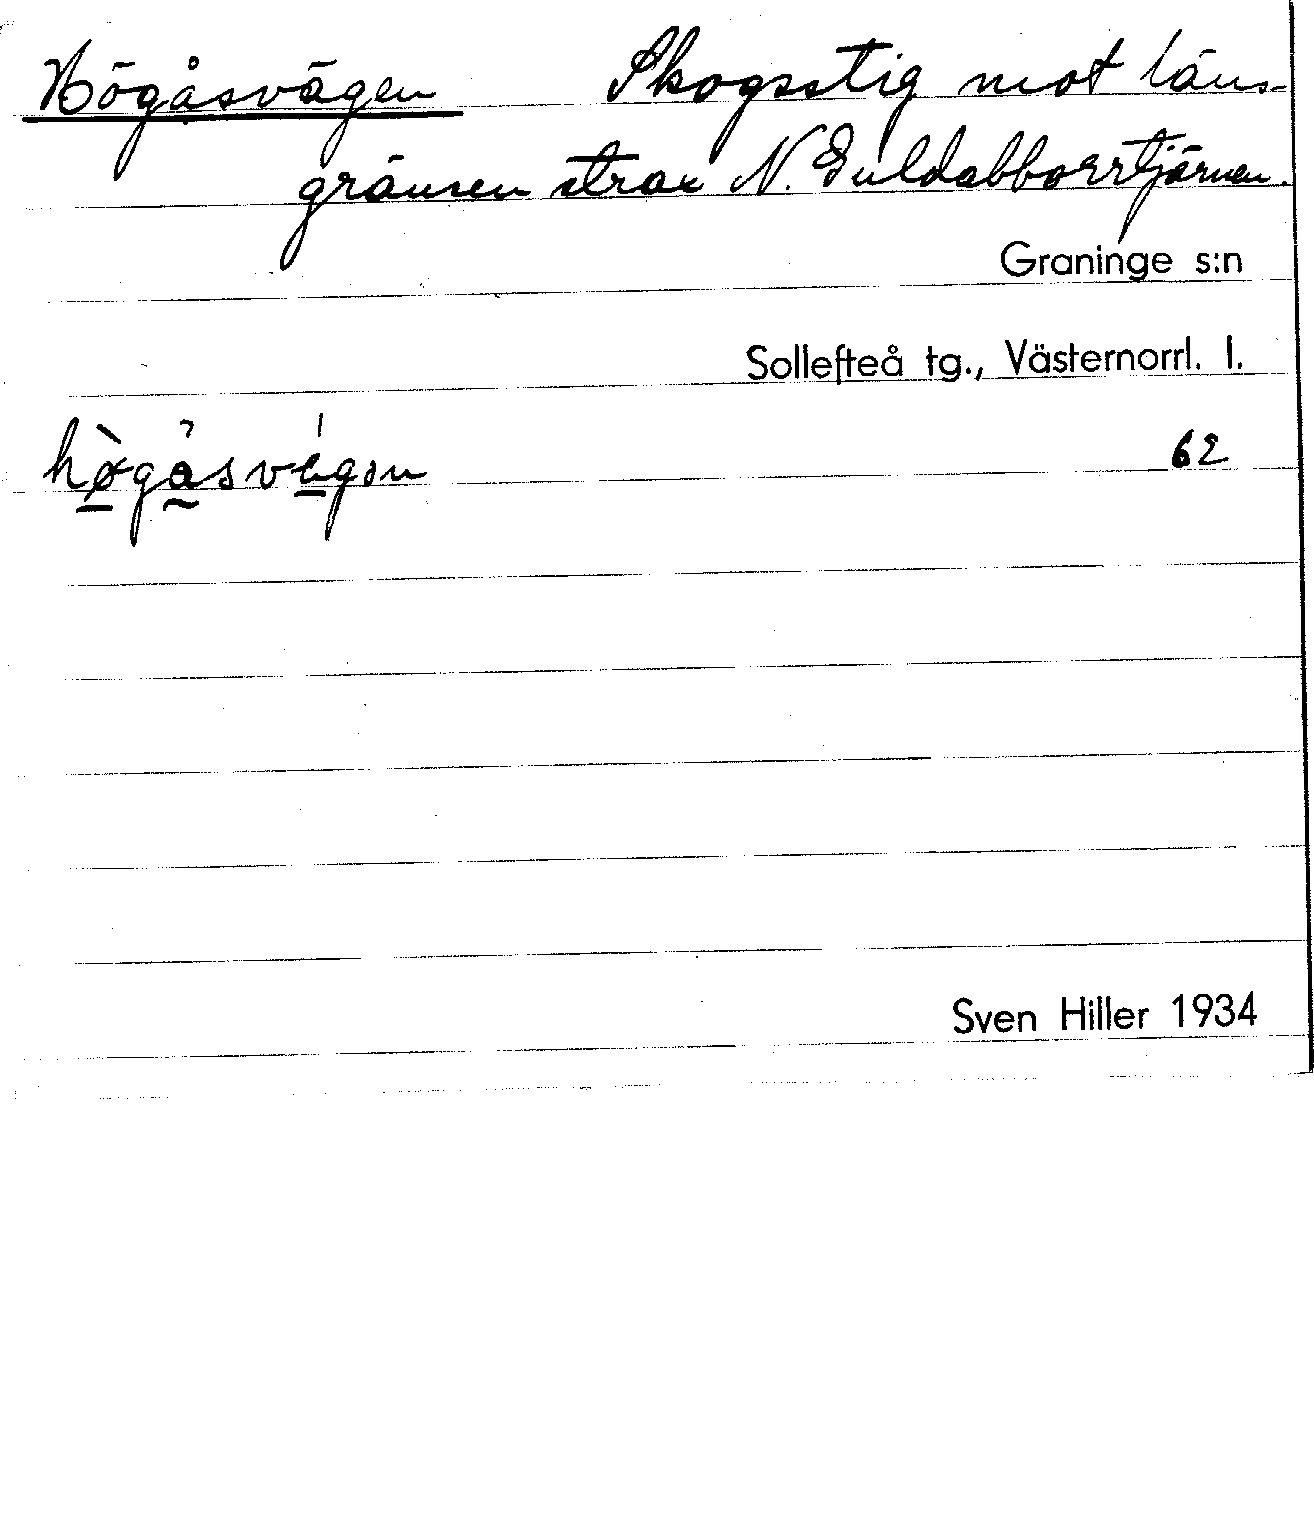 Högåsvägen Skogsstig mot läns-
gränsen strax N. Guldabborrtjärnen.
Graninge s:n
Sollefteå tg., Västernorrl. l.
62
Sven Hiller 1934